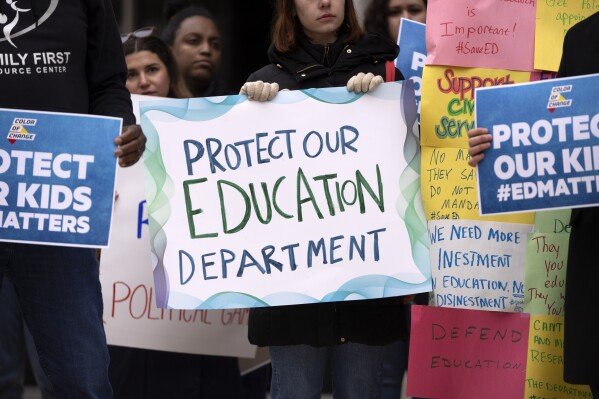 FAMILY FIRST
RESOURCE CENTER
COLOR
OF CHANGE
PROTECT
OUR KIDS
#EDMATTERS
PROTECT OUR
EDUCATION
DEPARTMENT
POLITICAL
is
Important!
#SaveED
Support
civil
Servi
NO MATTER
THEY SA
DO NOT
MANDA
SAVE
WE NEED MORE
INESTMENT
IN EDUCATION, NO
DISINVESTMENT
DEFEND
EDUCATION
COLOR
OF CHANGE
PROTEC
OUR KIDS
#EDMATTE
De
you
educ
They
CAN'T
Resear
The
DEPARTME